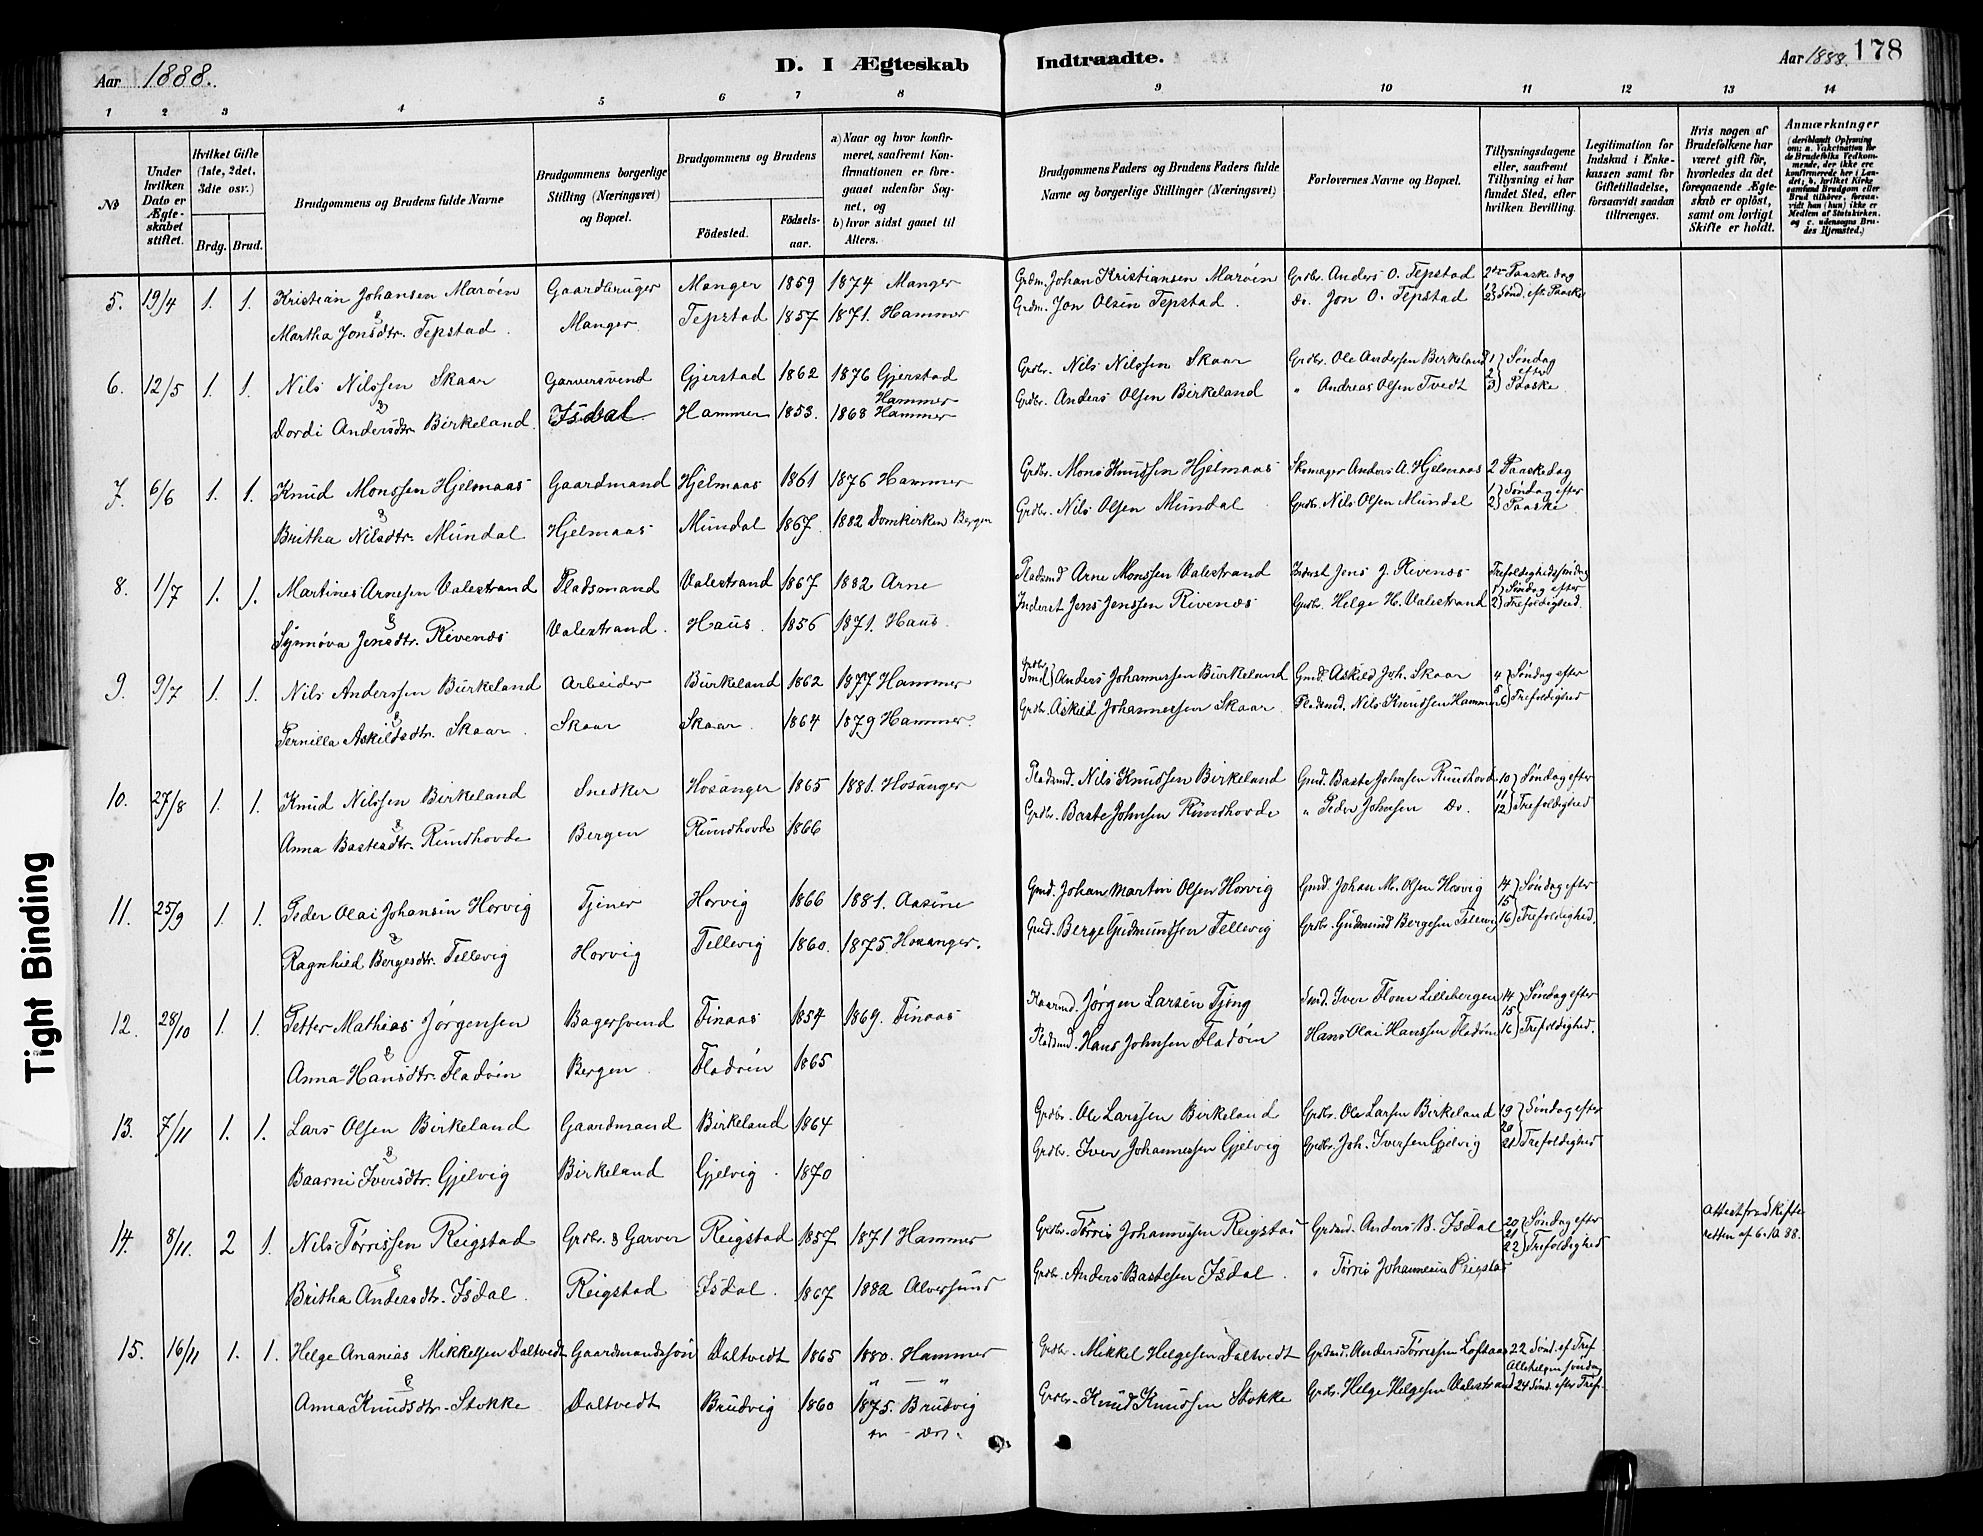 Aar 1888.
D. I Ægteskab
Indtraadte.
Aar 1888. 178
1 2 3 4 5 6 7 8 9 10 11 12 13 14
№
Under hvilken Dato er Ægteskabet stiftet.
Hvilket Gifte (1ste, 2det, 3die osv.)
Brdg. Brud.
Brudgommens og Brudens fulde Navne
Brudgommens borgerlige Stilling (Næringsvei) og Bopæl.
Brudgommens og Brudens
Fødested.
Fødselsaar.
a) Naar og hvor konfirmeret, saafremt Konfirmationen er foregaaet udenfor Sognet, og
b) hvor sidst gaaet til Alters.
Brudgommens Faders og Brudens Faders fulde Navne og borgerlige Stillinger (Næringsvei)
Forlovernes Navne og Bopæl.
Tillysningsdagene eller, saafremt Tillysning ei har fundet Sted, efter hvilken Bevilling.
Legitimation for Indskud i Enkekassen samt for Giftetilladelse, forsaavidt saadan tiltrænges.
Hvis nogen af Brudefolkene har været gift før, hvorledes da det foregaaende Ægteskab er opløst, samt om lovligt Skifte er holdt.
Anmærkninger
(deriblandt Oplysning om: a. Vakcination for de Brudefolks Vedkommende, der ikke ere konfirmerede her i Landet, b. hvilket Kirkesamfund Brudgom eller Brud tilhører, forsaavidt han (hun) ikke er Medlem af Statskirken, og c. udensogns Brudes Hjemsted.)
5. 19/4 1. 1. Kristian Johansen Marøen Gaardbruger Manger 1859 1874 Manger Grdm. Johan Kristiansen Marøen Grdbr. Anders O. Tepstad 2den Paaskedag
& Martha Jonsdtr. Tepstad. Manger. Tepstad 1857 1871. Hammer Grdm. Jon Olsen Tepstad. do. Jon O. Tepstad 1 2 Sønd. eft. Paaske
6. 12/5 1. 1. Nils Nilssen Skaar Garversvend Gjerstad 1862 1876 Gjerstad Grdbr. Nils Nilssen Skaar Grdbr. Ole Andersen Birkeland 1 2 3) Søndag efter Paaske
& Dordi Andersdtr. Birkeland. Isdal Hammer 1853. 1868 Hammer Hammer Grdbr. Anders Olsen Birkeland " Andreas Olsen Tvedt
7. 6/6 1. 1. Knud Monssen Hjelmaas Gaardmand Hjelmaas 1861 1876 Hammer Grdbr. Mons Knudsen Hjelmaas Skomager Anders A. Hjelmaas 2 Paaskedag
& Britha Nilsdtr. Mundal Hjelmaas Mundal 1867. 1882 Domkirken Bergen Grdbr. Nils Olsen Mundal Grdbr. Nils Olsen Mundal 1 2) Søndag efter Paaske.
8. 1/7 1. 1. Martines Arnesen Valestrand Pladsmand Valestrand 1867 1882 Arne Pladsmd Arne Monssen Valestrand Inderst Jens J. Rivenes Trefoldighedssøndag
& Synnøva Jensdtr. Rivenes Valestrand. Haus. 1856 1871. Haus. Inderst Jens Jenssen Rivenes Grdbr. Helge H. Valestrand 1 2) Søndag efter Trefoldighed.
9. 9/7 1. 1. Nils Anderssen Burkeland Arbeider Burkeland 1862 1877 Hammer Grdbr. Smid Anders Johannessen Burkeland Gmd Askild Joh. Skaar 4 5 6) Søndag efter Trefoldighed
& Pernilla Askildsdtr. Skaar. Skaar Skaar. 1864 1879 Hammer. Grdbr. Askild Johannessen Skaar Pladsmd. Nils Knudssen Hammer
10. 27/8 1. 1. Knud Nilssen Birkeland Snedker Hosanger 1865 1881. Hosanger Pladsmd. Nils Knudssen Birkeland Gmd. Baste Johnsen Rundhovde 10 11 12) Søndag efter Trefoldighed
& Anna Bastesdtr. Rundhovde Bergen Rundhovde 1866 Grdbr. Baste Johnsen Rundhovde " Peder Johnsen do.
11. 25/9 1. 1. Peder Olai Johansen Horvig Tjener Horvig 1866 1881. Aasene Gmd. Johan Martin Olsen Horvig Gmd. Johan M. Olsen Horvig 14 15 16) Søndag efter Trefoldighed.
& Ragnhild Bergesdtr. Tellevig Horvig Tellevig 1860. 1875. Hosanger. Gmd. Berge Gudmundsen Tellevig Grdbr. Gudmund Bergesen Tellevig
12. 28/10 1. 1. Petter Mathias Jørgensen Bagersvend Finaas 1854 1869. Finaas Kaarmd. Jørgen Larsen Tjong Smd. Iver Flom Lillebergen 14 15 16) Søndag efter Trefoldighed.
& Anna Hansdtr. Fladøen Bergen. Fladøen 1865 Pladsmd. Hans Johnsen Fladøen Hans Olai Hanssen Fladøen
13. 7/11 1. 1. Lars Olsen Birkeland Gaardmand Birkeland 1864 Grdbr. Ole Larssen Birkeland Grdbr. Ole Larsen Birkeland 19 20 21 Søndag efter Trefoldighed
& Baarni Iversdtr. Gjelvig Birkeland Gjelvig. 1870 Grdbr. Iver Johannessen Gjelvig Grdbr. Joh. Iversen Gjelvig
14. 8/11. 2 1. Nils Tørrissen Reigstad Grdbr. & Garver Reigstad 1857 1871 Hammer Grdbr. Tørris Johannessen Reigstad Grdmd. Anders B. Isdal 20 21 22) Søndag efter Trefoldighed Attest fra Skifteretten af 6-10 88.
& Britha Andersdtr. Isdal. Reigstad Isdal. 1867 1882 Alversund Grdbr. Anders Bastesen Isdal. " Tørris Johannesen Reigstad
15. 16/11 1. 1. Helge Ananias Mikkelsen Daltvedt Gaardmandssøn Daltvedt 1865 1880. Hammer Grdbr. Mikkel Helgesen Daltvedt Grdmd. Anders Tørrissen Loftaas 22 Sønd. ef. Tref Allehelgensøndag
& Anna Knudsdtr. Stokke Daltvedt Brudvig 1860 1875. Brudvig Grdbr. Knud Knudssen Stokke Grdbr. Helge Helgesen Valestrand 24 Sønd. efter Tref.
Tight Binding